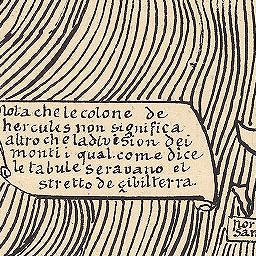 Nota che le colone de
hercules non significa
altro che la division dei
monti i qual come dice
le tabule seravano el
stretto de gibilterra.
hor
san